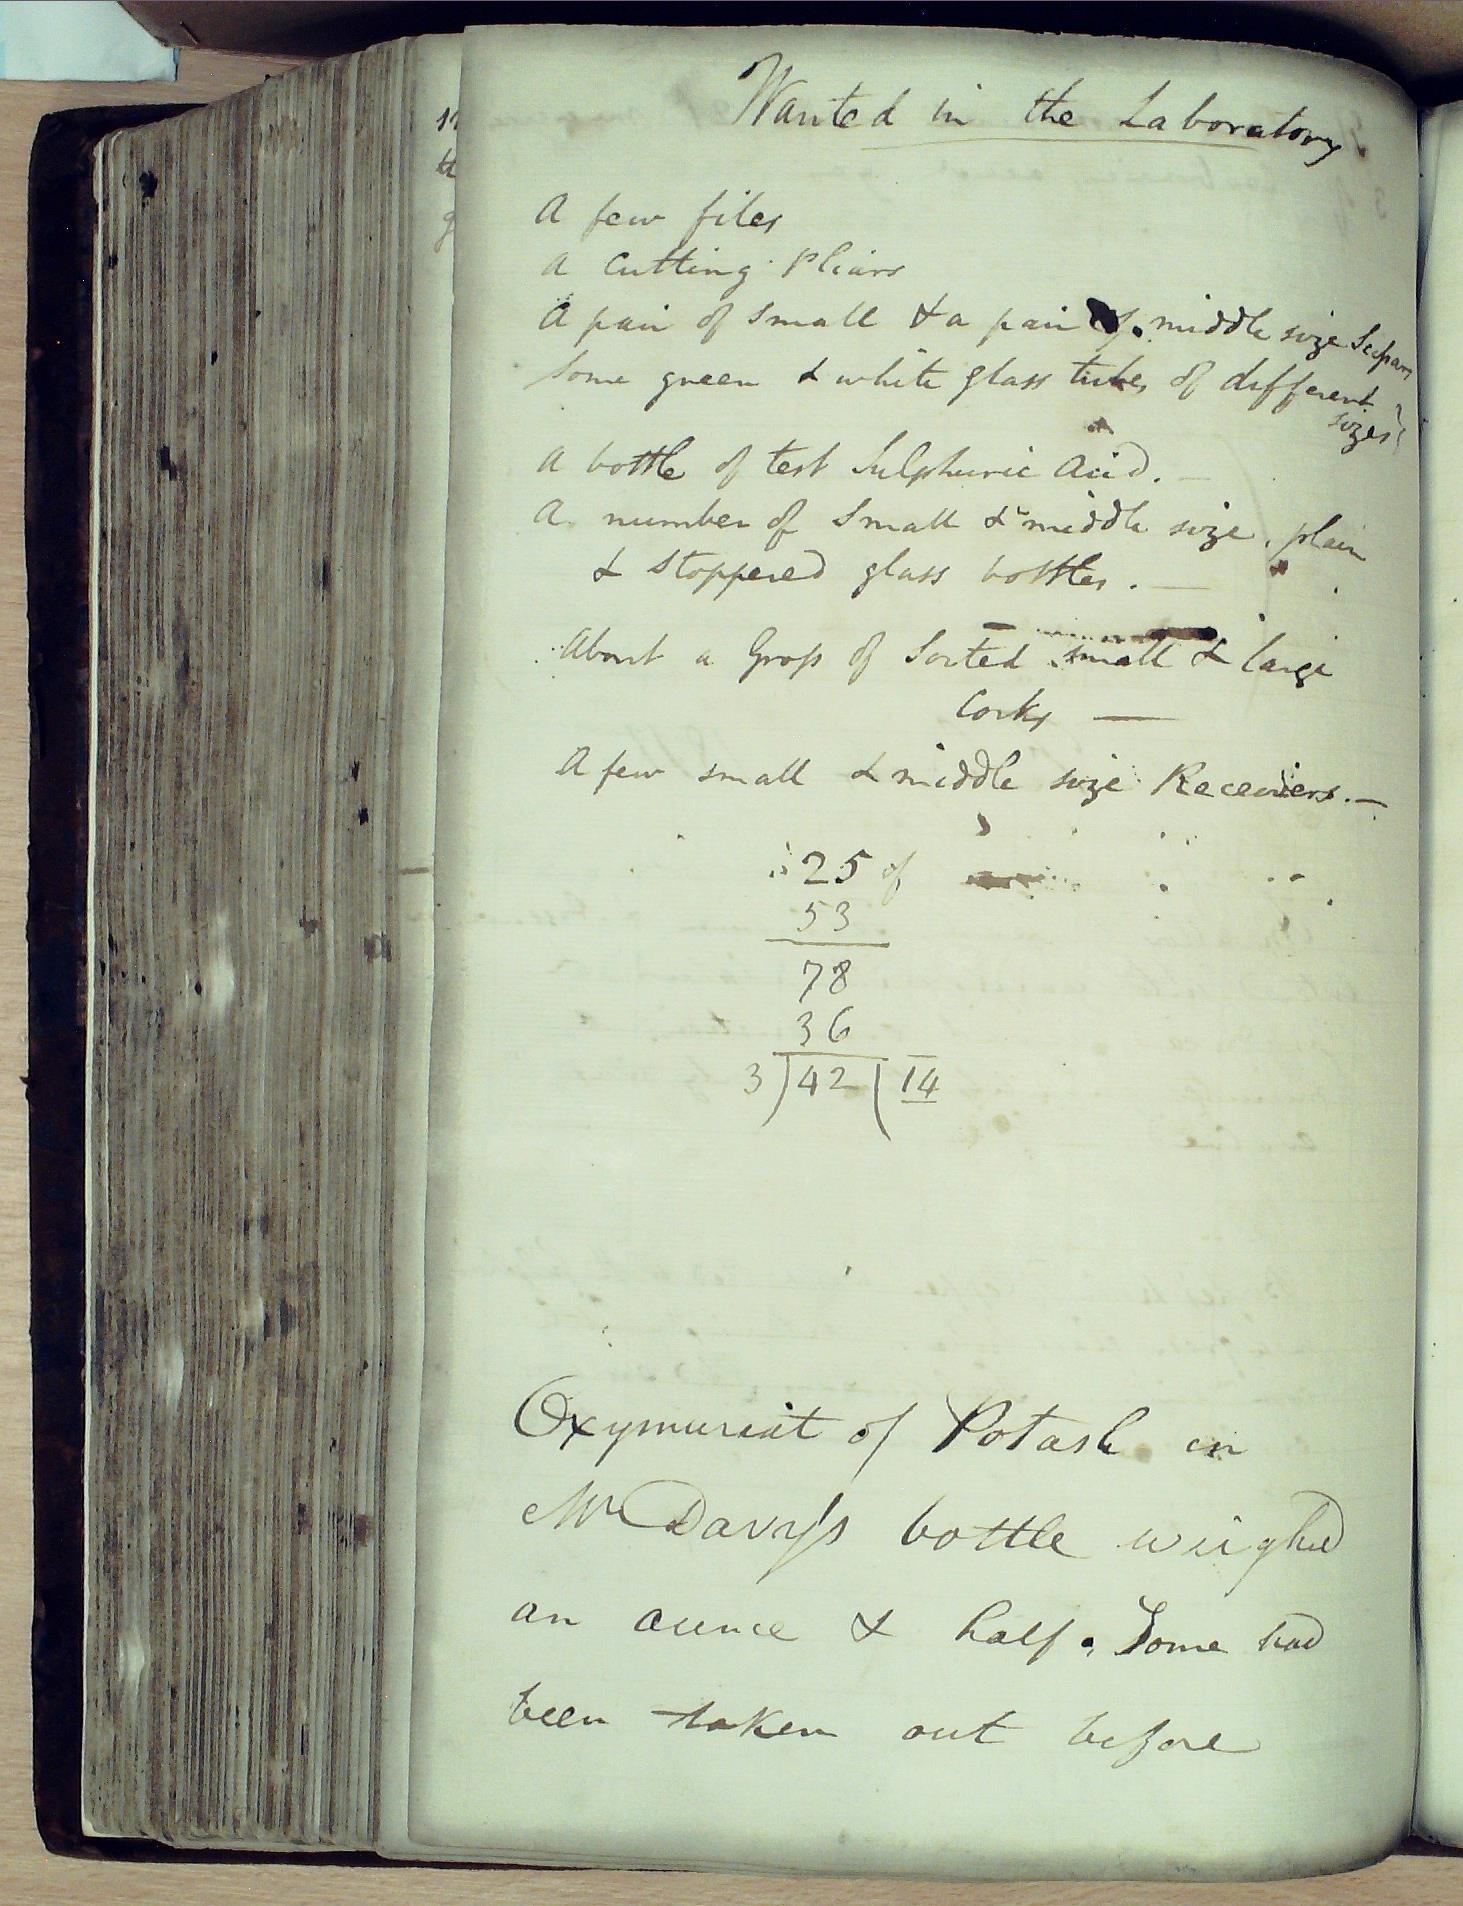 Wanted in the Laboratory
A few files
A Cutting Pliars
A pair of Small & a pair of middle size
Some green & white glass tubes of different
sizes
A bottle of test Sulphuric Acid. —
A number of Small & middle size, plain
& Stoppered glass bottles. —
About a Gross of Sorted small & large
Corks —
A few small & middle size Receivers. —
25 of
53
78
36
3)42(14
Oxymuriat of Potash in
Mr Davy's bottle weighed
an ounce & half. Some had
been taken out before